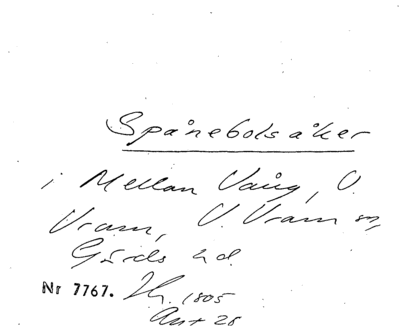 Spånebolsåker
i Mellan Vång, V.
Vram, V. Vram sn,
Gärds hd.
Nr 7767. 1805
28